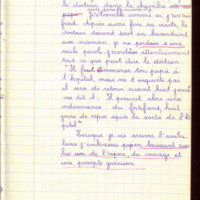 le docteur dans la chambre
papa. Je tremble comme si j'avais
froid. Après avoir fini sa visite, le
docteur descend tout en bavardant
avec maman. Je ne perdais a une
seule parole, j'écoutais attentivement
tout ce que peut dire le docteur
"Il faut emmener ton papa à
l'hôpital, mais ne t'inquiète pas
il sera de retour avant huit jours
me dit-il. Il prescrit alors une
ordonnance du fortifiant, huit
jours de repos après la sortie de l'hô
pital"
Lorsque je vis arriver l'ambu
lance j'embrasse papa,
lui du repos, du courage et
une prompte guérison.